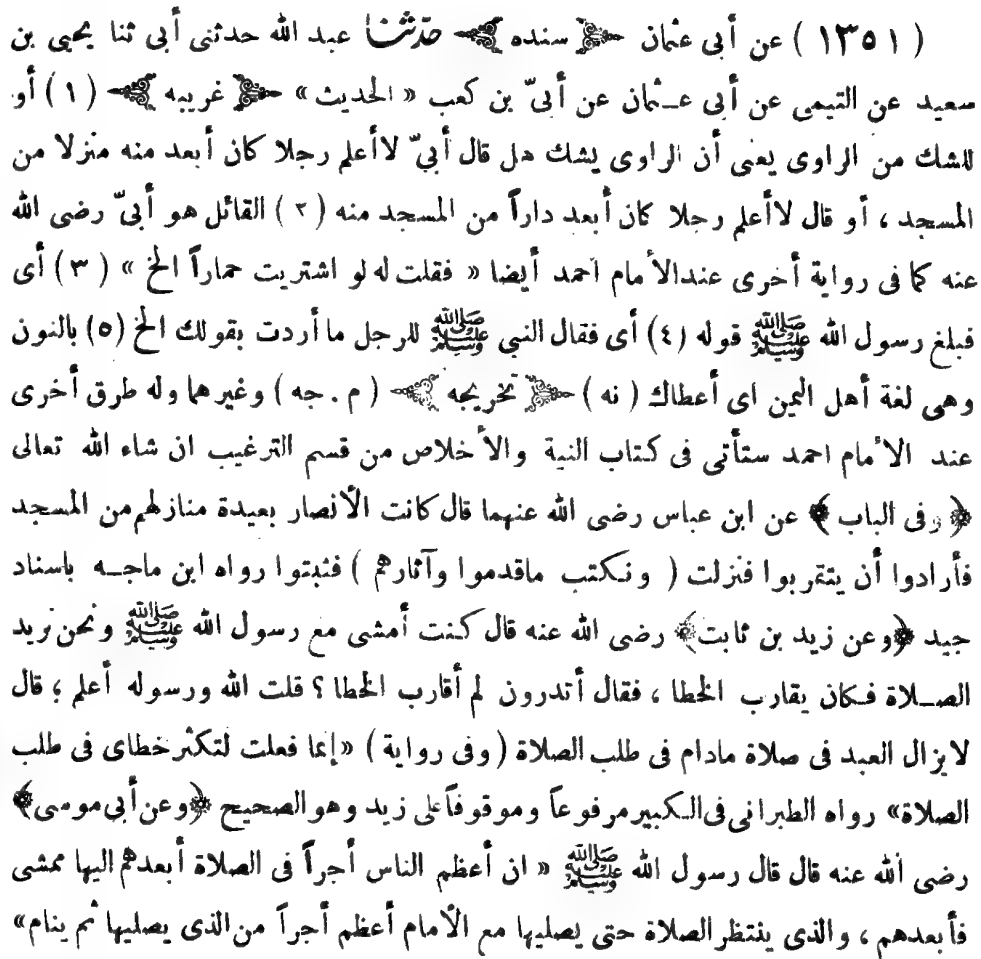 ( ١٣٥١ ) عن أبى عثمان ﴿ سنده ﴾ حدّثنا عبد الله حدثنى أبى ثنا يحيى بن
سعيد عن التيمى عن أبى عـثمان عن أبىّ بن كعب « الحديث » ﴿ غريبه ﴾ ( ١ ) أو
للشك من الراوى يعنى أن الراوى يشك هل قال أبىّ لاأعلم رجلا كان أبعد منه منزلا من
المسجد ، أو قال لاأعلم رجلا كان أبعد داراً من المسجد منه ( ٢ ) القائل هو أبىّ رضى الله
عنه كما فى رواية أخرى عندالأمام احمد أيضا « فقلت له لو اشتريت حماراً الخ » ( ٣ ) أى
فبلغ رسول الله ﷺ قوله (٤) أى فقال النبي ﷺ للرجل ما أردت بقولك الخ (٥) بالنون
وهى لغة أهل اليمن اى أعطاك ( نه ) ﴿ تخريجه ﴾ ( م . جه ) وغيرهما وله طرق أخرى
عند الأمام احمد ستأتى فى كتاب النية والأخلاص من قسم الترغيب ان شاء الله تعالى
﴿ وفى الباب ﴾ عن ابن عباس رضى الله عنهما قال كانت الأنصار بعيدة منازلهم من المسجد
فأرادوا أن يتقربوا فنزلت ( ونكتب ماقدموا وآثارهم ) فثبتوا رواه ابن ماجـه باسناد
جيد ﴿وعن زيد بن ثابت﴾ رضى الله عنه قال كنت أمشى مع رسول الله ﷺ ونحن نريد
الصـلاة فـكان يقارب الخطا ، فقال أتدرون لم أقارب الخطا ؟ قلت الله ورسوله أعلم ؛ قال
لايزال العبد فى صلاة مادام فى طلب الصلاة ( وفى رواية ) «إنما فعلت لتكثر خطاى فى طلب
الصلاة» رواه الطبرانى فى الـكبير مرفوعاً وموقوفاً على زيد وهو الصحيح ﴿وعن أبى موسى﴾
رضى الله عنه قال قال رسول الله ﷺ « ان أعظم الناس أجراً فى الصلاة أبعدهم اليها ممشى
فأبعدهم ، والذى ينتظر الصلاة حتى يصليها مع الأمام أعظم أجراً من الذى يصليها ثم ينام»